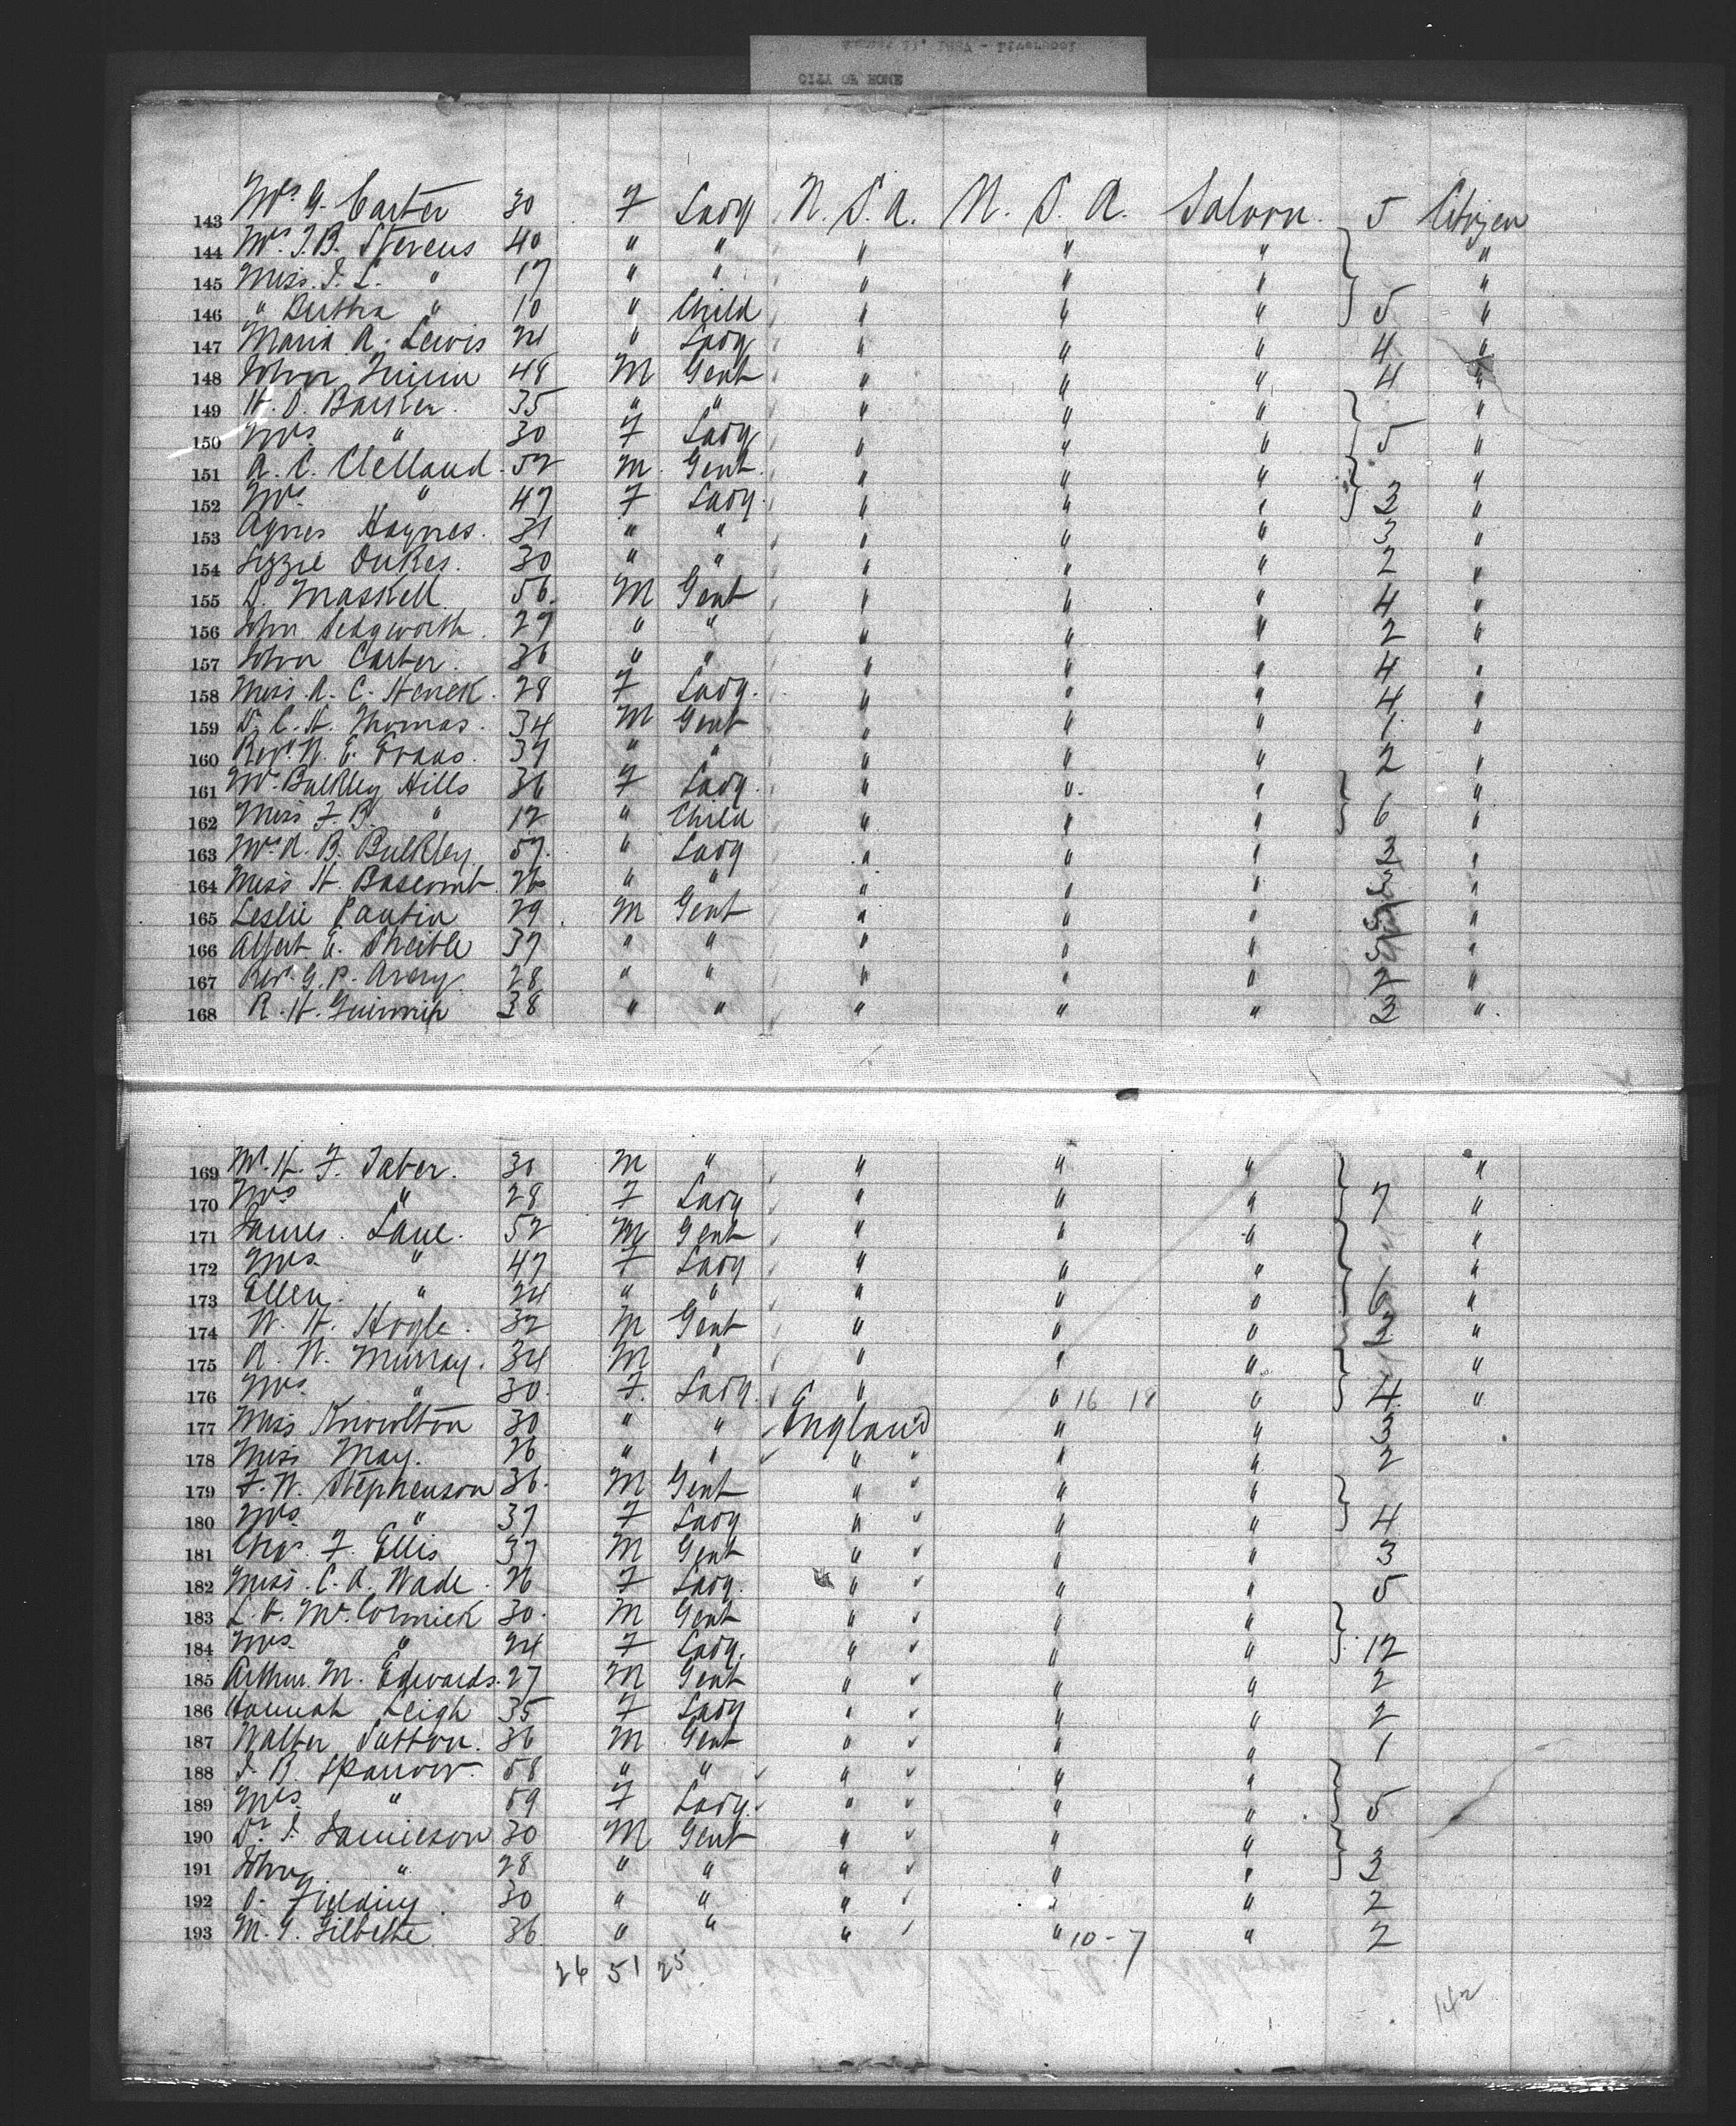 CITY OF ROME
143 Mrs G. Carter 30 F Lady U. S. A. U. S. A. Saloon. 5 Citizen
144 Mrs J. B. Stevens 40 " " " " " "
145 Miss J. L. " 17 " " " " " "
146 " Bertha " 10 " Child " " " 5 "
147 Maria A. Lewis 24 " Lady " " " 4 "
148 John 48 M Gent " " " 4 "
149 H. D. Barker. 35 " " " " " "
150 Mrs " 30 F Lady " " " 5 "
151 A. C. Clelland. 52 M. Gent. " " " "
152 Mrs " 47 F Lady. " " " 3 "
153 Agnes Haynes. 31 " " " " " 3 "
154 Lizzie Dukes. 30 " " " " " 2 "
155 D. Maskell 56. M Gent " " " 4 "
156 John Sedgworth. 27 " " " " " 2 "
157 John Carter. 36 " " " " " 4 "
158 Miss A. C. 28 F Lady. " " " 4 "
159 Dr C. H. Thomas. 34 M Gent " " " 1 "
160 Revd W. E. Evans. 37 " " " " " 2 "
161 Mrs Bulkley Hills 36 F Lady. " " " "
162 Miss F. B. " 12 " Child " " " 6 "
163 Mrs A. B. Bulkley 57. " Lady " " " 3 "
164 Miss H. Bascomb. 26 " " " " " 3 "
165 Leslie 29. M Gent " " " "
166 Albert E. 37 " " " " " "
167 Rev. G. P. Avery. 28 " " " " " 2 "
168 R. H. 38 " " " " " 3 ".
169 Mr. H. F. Taber. 30 M " " " " "
170 Mrs " 28 F Lady " " " 7 "
171 James. Lane. 52 M Gent " " " "
172 Mrs " 47 F Lady " " " "
173 Ellen. " 24 " " " " " 6 "
174 W. H. Hogle. 32 M Gent " " " 3 "
175 A. W. Murray. 34 M " " " " "
176 Mrs " 30. F. Lady. " " 16 18 " 4 "
177 Miss Knowlton 30 " " England " " 3
178 Miss May. 26 " " " " " 2
179 F. W. Stephenson 36. M Gent " " "
180 Mrs " 37 F Lady " " " 4
181 Chas. F. Ellis 37 M Gent " " " 3
182 Miss. C. A. Wade. 26 F Lady. " " " 5
183 L. H. McCormick 30. M Gent " " "
184 Mrs " 24 F Lady. " " " 12
185 Arthur. M. Edwards. 27 M Gent " " " 2
186 Hannah Leigh 35 F Lady " " " 2
187 Walter Sutton. 36 M Gent " " " 1
188 J. B. Sparrow. 58 " " " " "
189 Mrs " 59 F Lady. " " " 5
190 Dr. J. Jamieson 30 M Gent " " "
191 John " 28 " " " " " 3
192 Fielding. 30 " " " " " 2
193 M. G. 36 " " " " 10 - 7 " 2
26 51 25
142